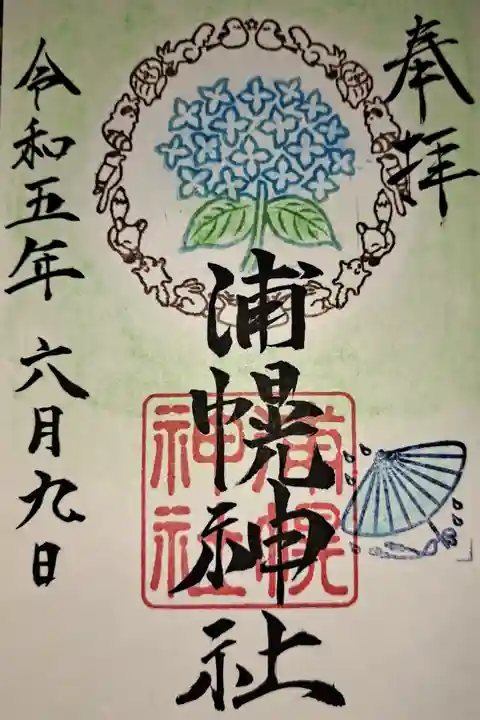 奉拝
浦幌神社
浦幌神社
令和五年 六月九日